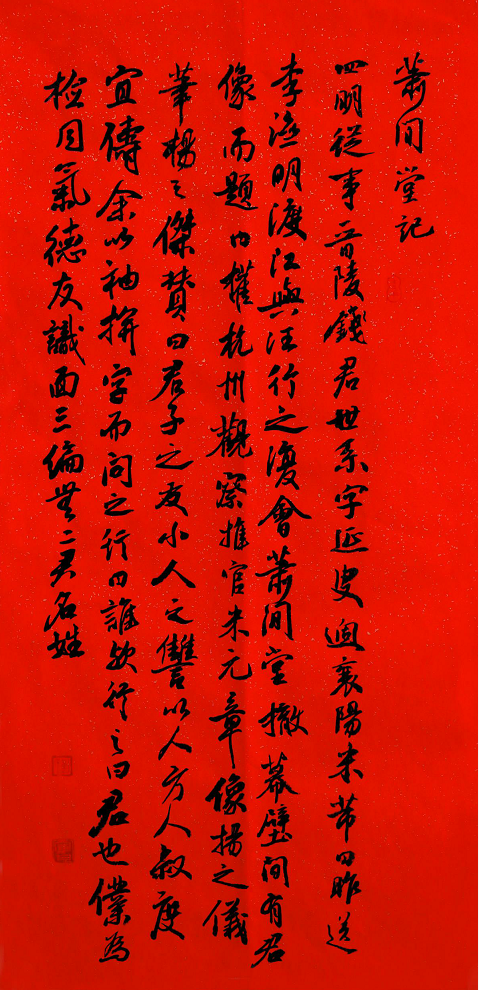 蕭閒堂記
四明從事晉陵錢君世系字延叟過襄陽米芾曰昨送
李湛明渡江與汪行之復會蕭閒堂撤幕壁間有君
像而題曰權杭州觀察推官米元章像揚之儀
華楊之傑贊曰君子之友小人之讐以人方人叔度
宜儔余以袖掩字而問之行曰誰歟行之曰君也僕為
檢用氣德友識面三編無二君名姓